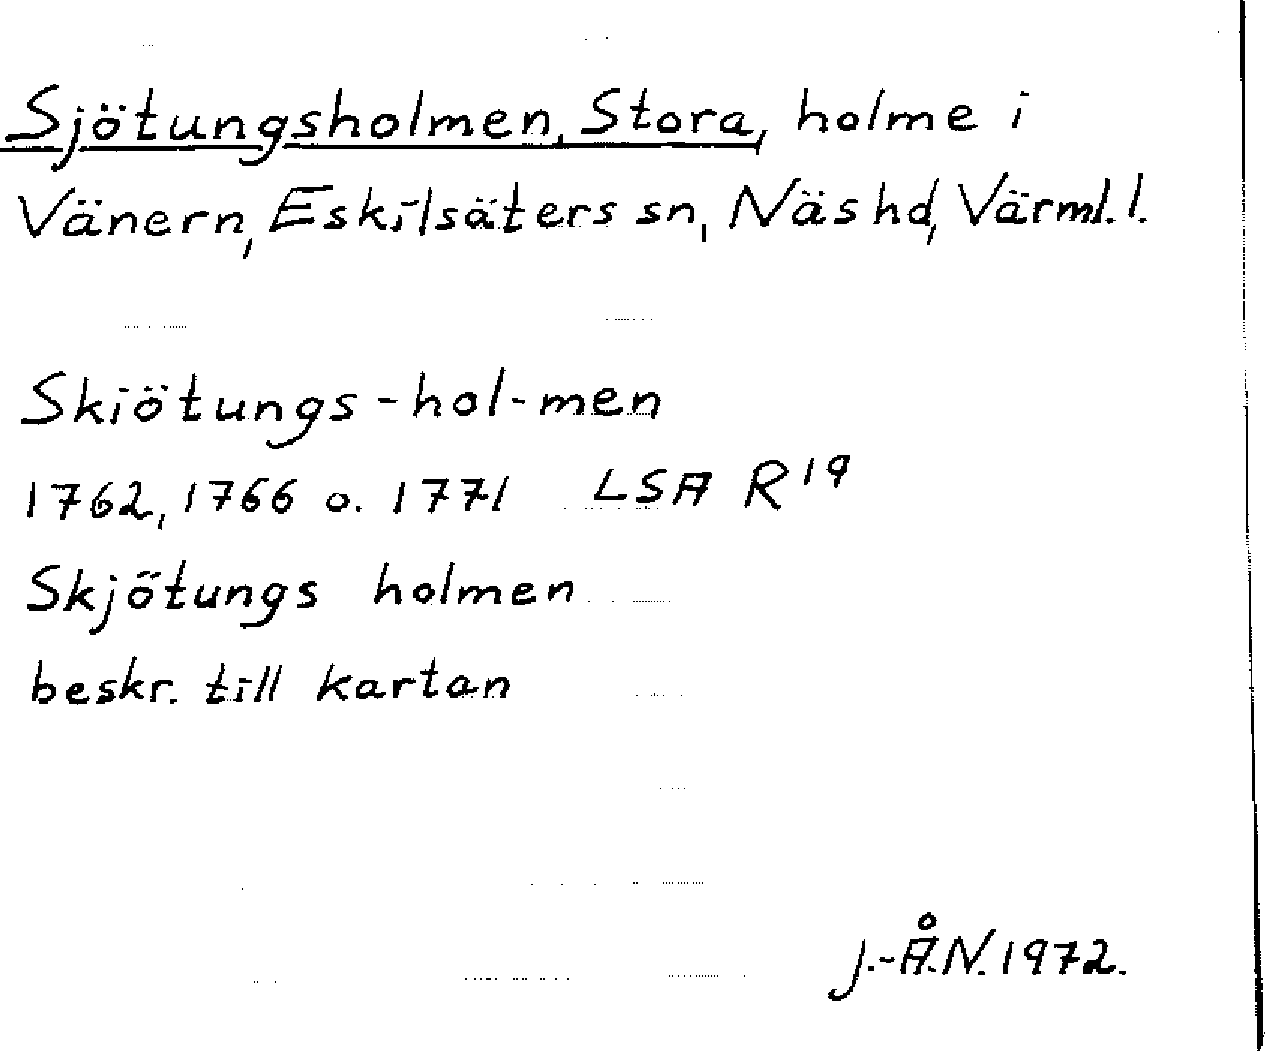 Sjötungsholmen, Stora, holme i
Vänern, Eskilsäters sn, Näs hd, Värml. l.
Skiötungs-hol-men
1762, 1766 o. 1771 LSA R19
Skjötungs holmen
beskr. till kartan
J.-Å.N. 1972.